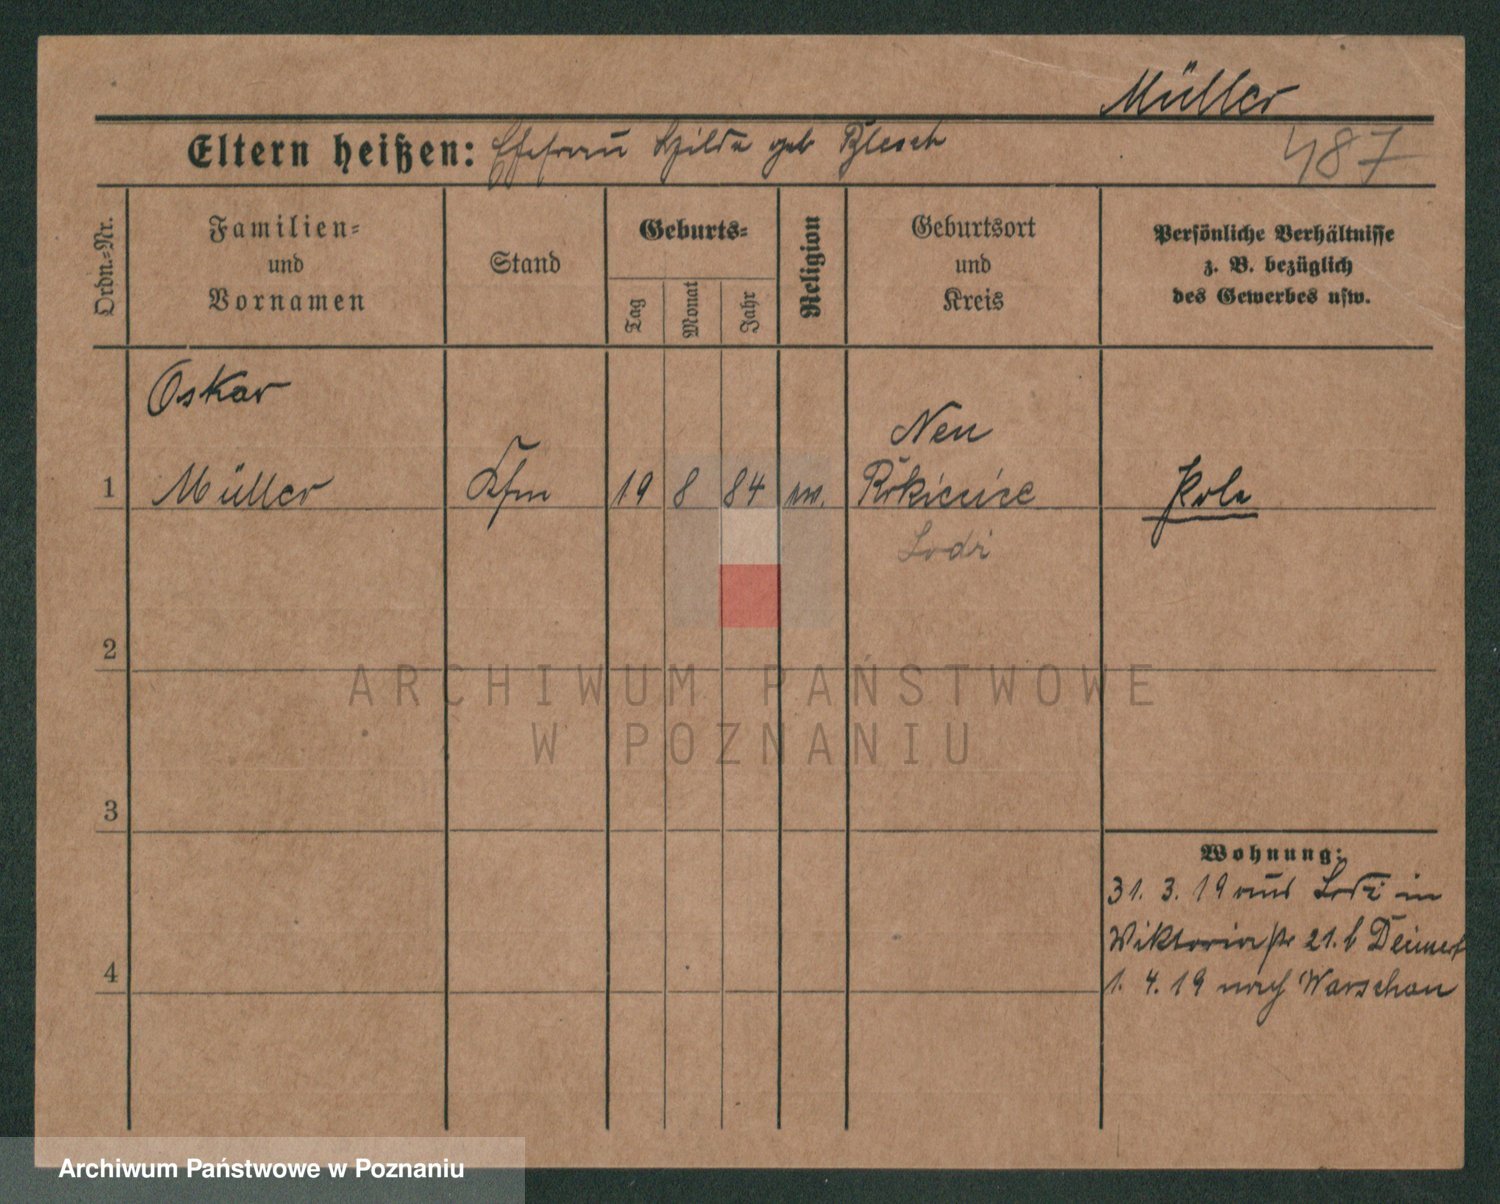 Müller
Eltern heißen: Ehefrau Hilda geb
487
Ordn.-Nr.
Familien-
und
Vornamen
Stand
Geburts-
Tag
Monat
Jahr
Religion
Geburtsort
und
Kreis
Persönliche Verhältnisse
z. B. bezüglich
des Gewerbes usw.
Oskar
1 Müller Kfm 19 8 84 ev. Neu
Rokiciice Pole
Lodz
2
ARCHIWUM PAŃSTWOWE
W POZNANIU
3
Wohnung:
31. 3. 19 aus Lodz in
Wiktoriastr 21. b
4
1. 4. 19 nach Warschau
Archiwum Państwowe w Poznaniu